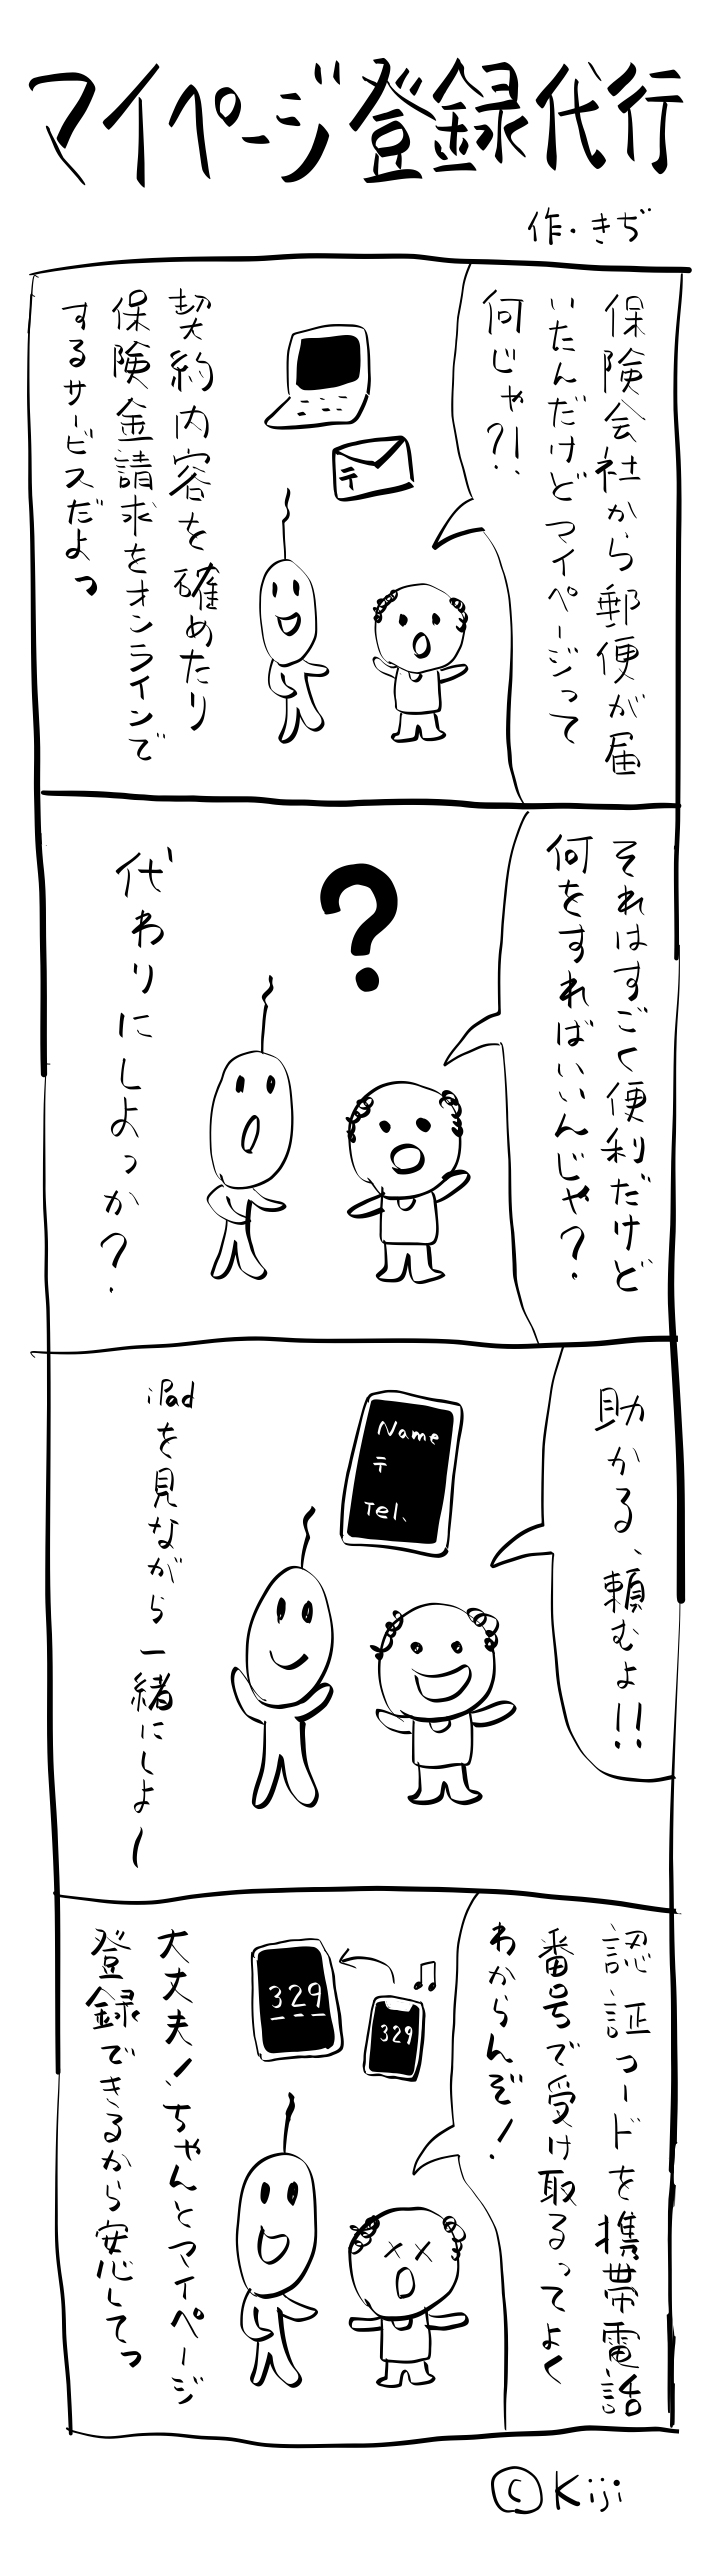 マイページ登録代行
作・きぢ
保険会社から郵便が届
いたんだけどマイページって
何じゃ?!
〒
契約内容を確めたり
保険金請求をオンラインで
するサービスだよっ
それはすごく便利だけど
何をすればいいんじゃ?
?
代わりにしよっか?
助かる、頼むよ!!
Name
〒
Tel.
iPadを見ながら一緒にしよー
認証コードを携帯電話
番号で受け取るってよく
わからんぞ!
329
329
大丈夫!ちゃんとマイページ
登録できるから安心してっ
©Kiji